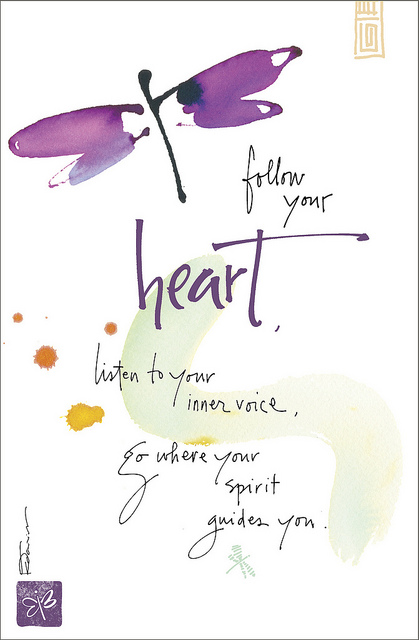 follow
your
heart,
listen to your
inner voice,
go where your
spirit
guides you.